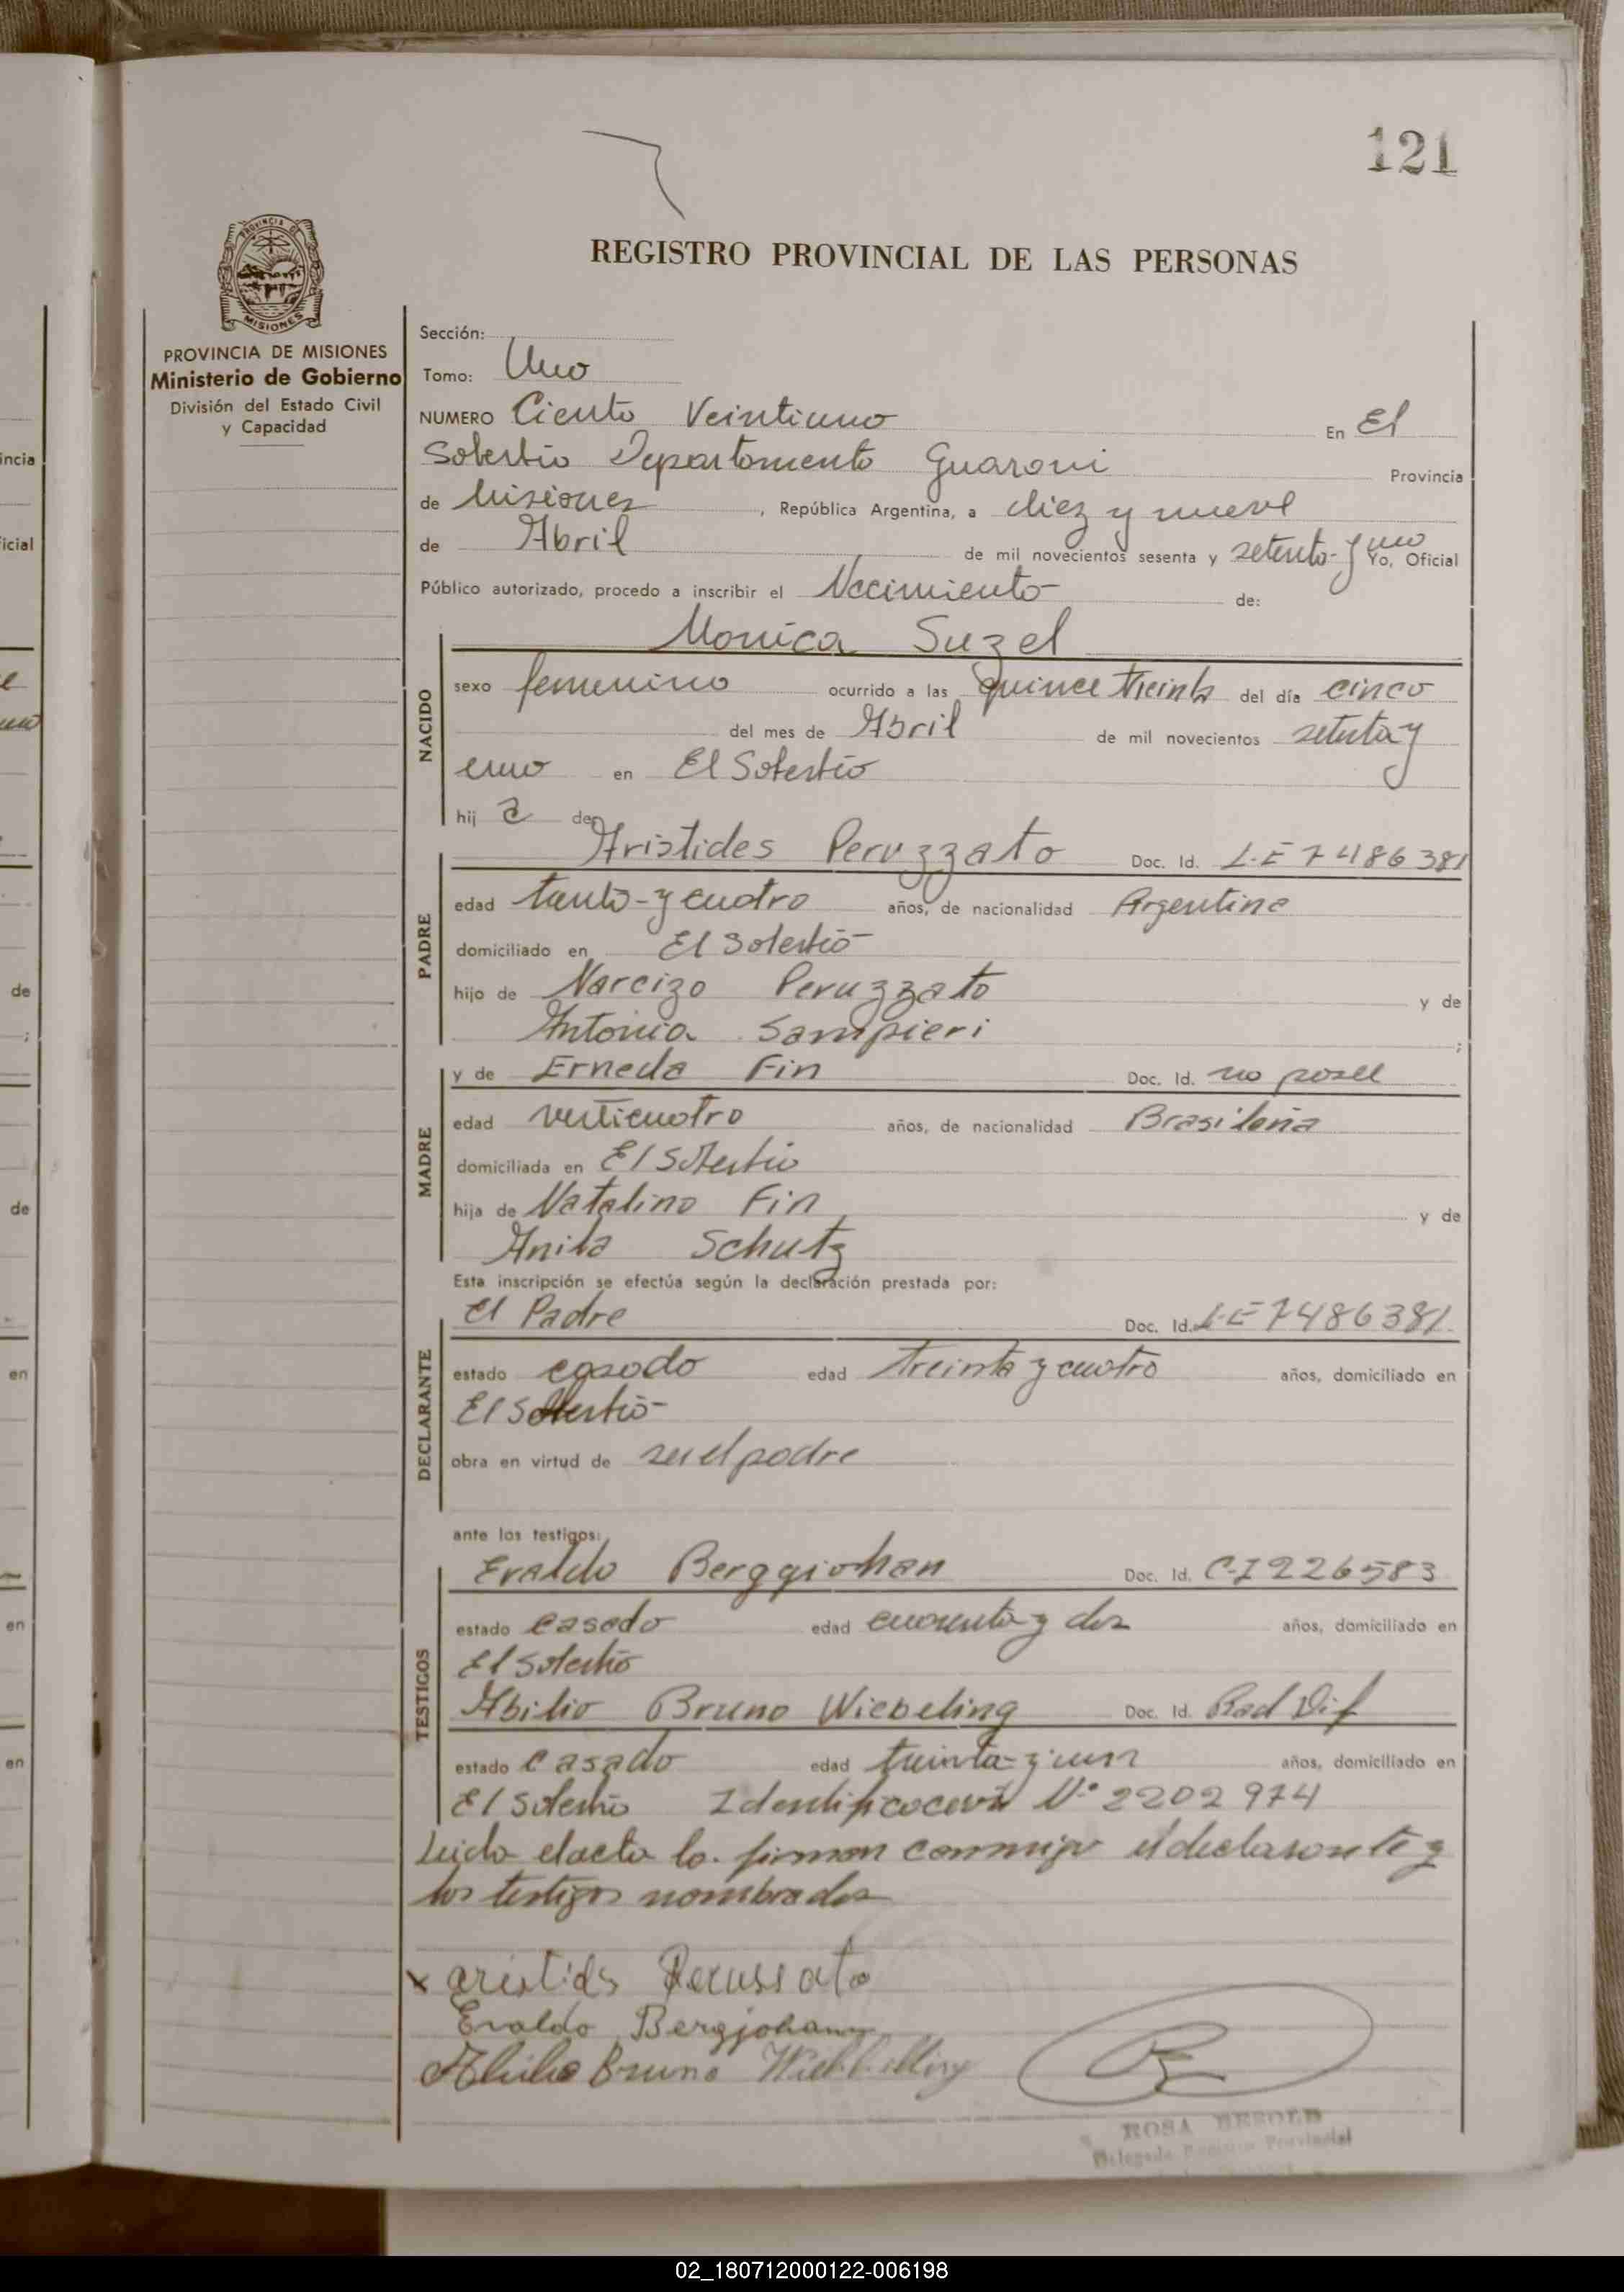 121
REGISTRO PROVINCIAL DE LAS PERSONAS
PROVINCIA DE
MISIONES
PROVINCIA DE MISIONES
Ministerio de Gobierno
División del Estado Civil
y Capacidad
Sección:
Tomo: Uno
NUMERO Ciento Veintiuno En El
Soberbio Departamento Guarani Provincia
de Misiones, República Argentina, a diez y nueve
de Abril de mil novecientos sesenta y setenta y uno Yo, Oficial
Público autorizado, procedo a inscribir el Nacimiento de:
Monica Suzel
NACIDO
sexo femenino ocurrido a las quince treinta del día cinco
del mes de Abril de mil novecientos setenta y
uno en El Soberbio
hij a de
PADRE
Aristides Peruzzato Doc. Id. L.E 7486381
edad y cuatro años, de nacionalidad Argentina
domiciliado en El Soberbio
hijo de Narcizo Peruzzato y de
Antonia Sampieri ;
MADRE
y de Erneda Fin Doc. Id. no posee
edad veinticuatro años, de nacionalidad Brasileña
domiciliada en El Soberbio
hija de Natalino Fin y de
Anita Schutz
Esta inscripción se efectúa según la declaración prestada por:
DECLARANTE
El Padre Doc. Id. L-E 7486381
estado casado edad treinta y cuatro años, domiciliado en
El Soberbio
obra en virtud de ser el padre
ante los testigos:
TESTIGOS
Evaldo Berggiohan Doc. Id. C-I 226583
estado casado edad cuarenta y dos años, domiciliado en
El Soberbio
Abilio Bruno Wiebeling Doc. Id. Rad Dif
estado casado edad treinta y un años, domiciliado en
El Soberbio Identificación Nº 2202974
Leida el acta la firman conmigo el declarante y
los testigos nombrados
x aristides Perussato
Evaldo Bergjohann
Abilio Bruno
ROSA BESOLD
Delegada Registro Provincial
incia
icial
de
;
de
en
en
en
02_180712000122-006198